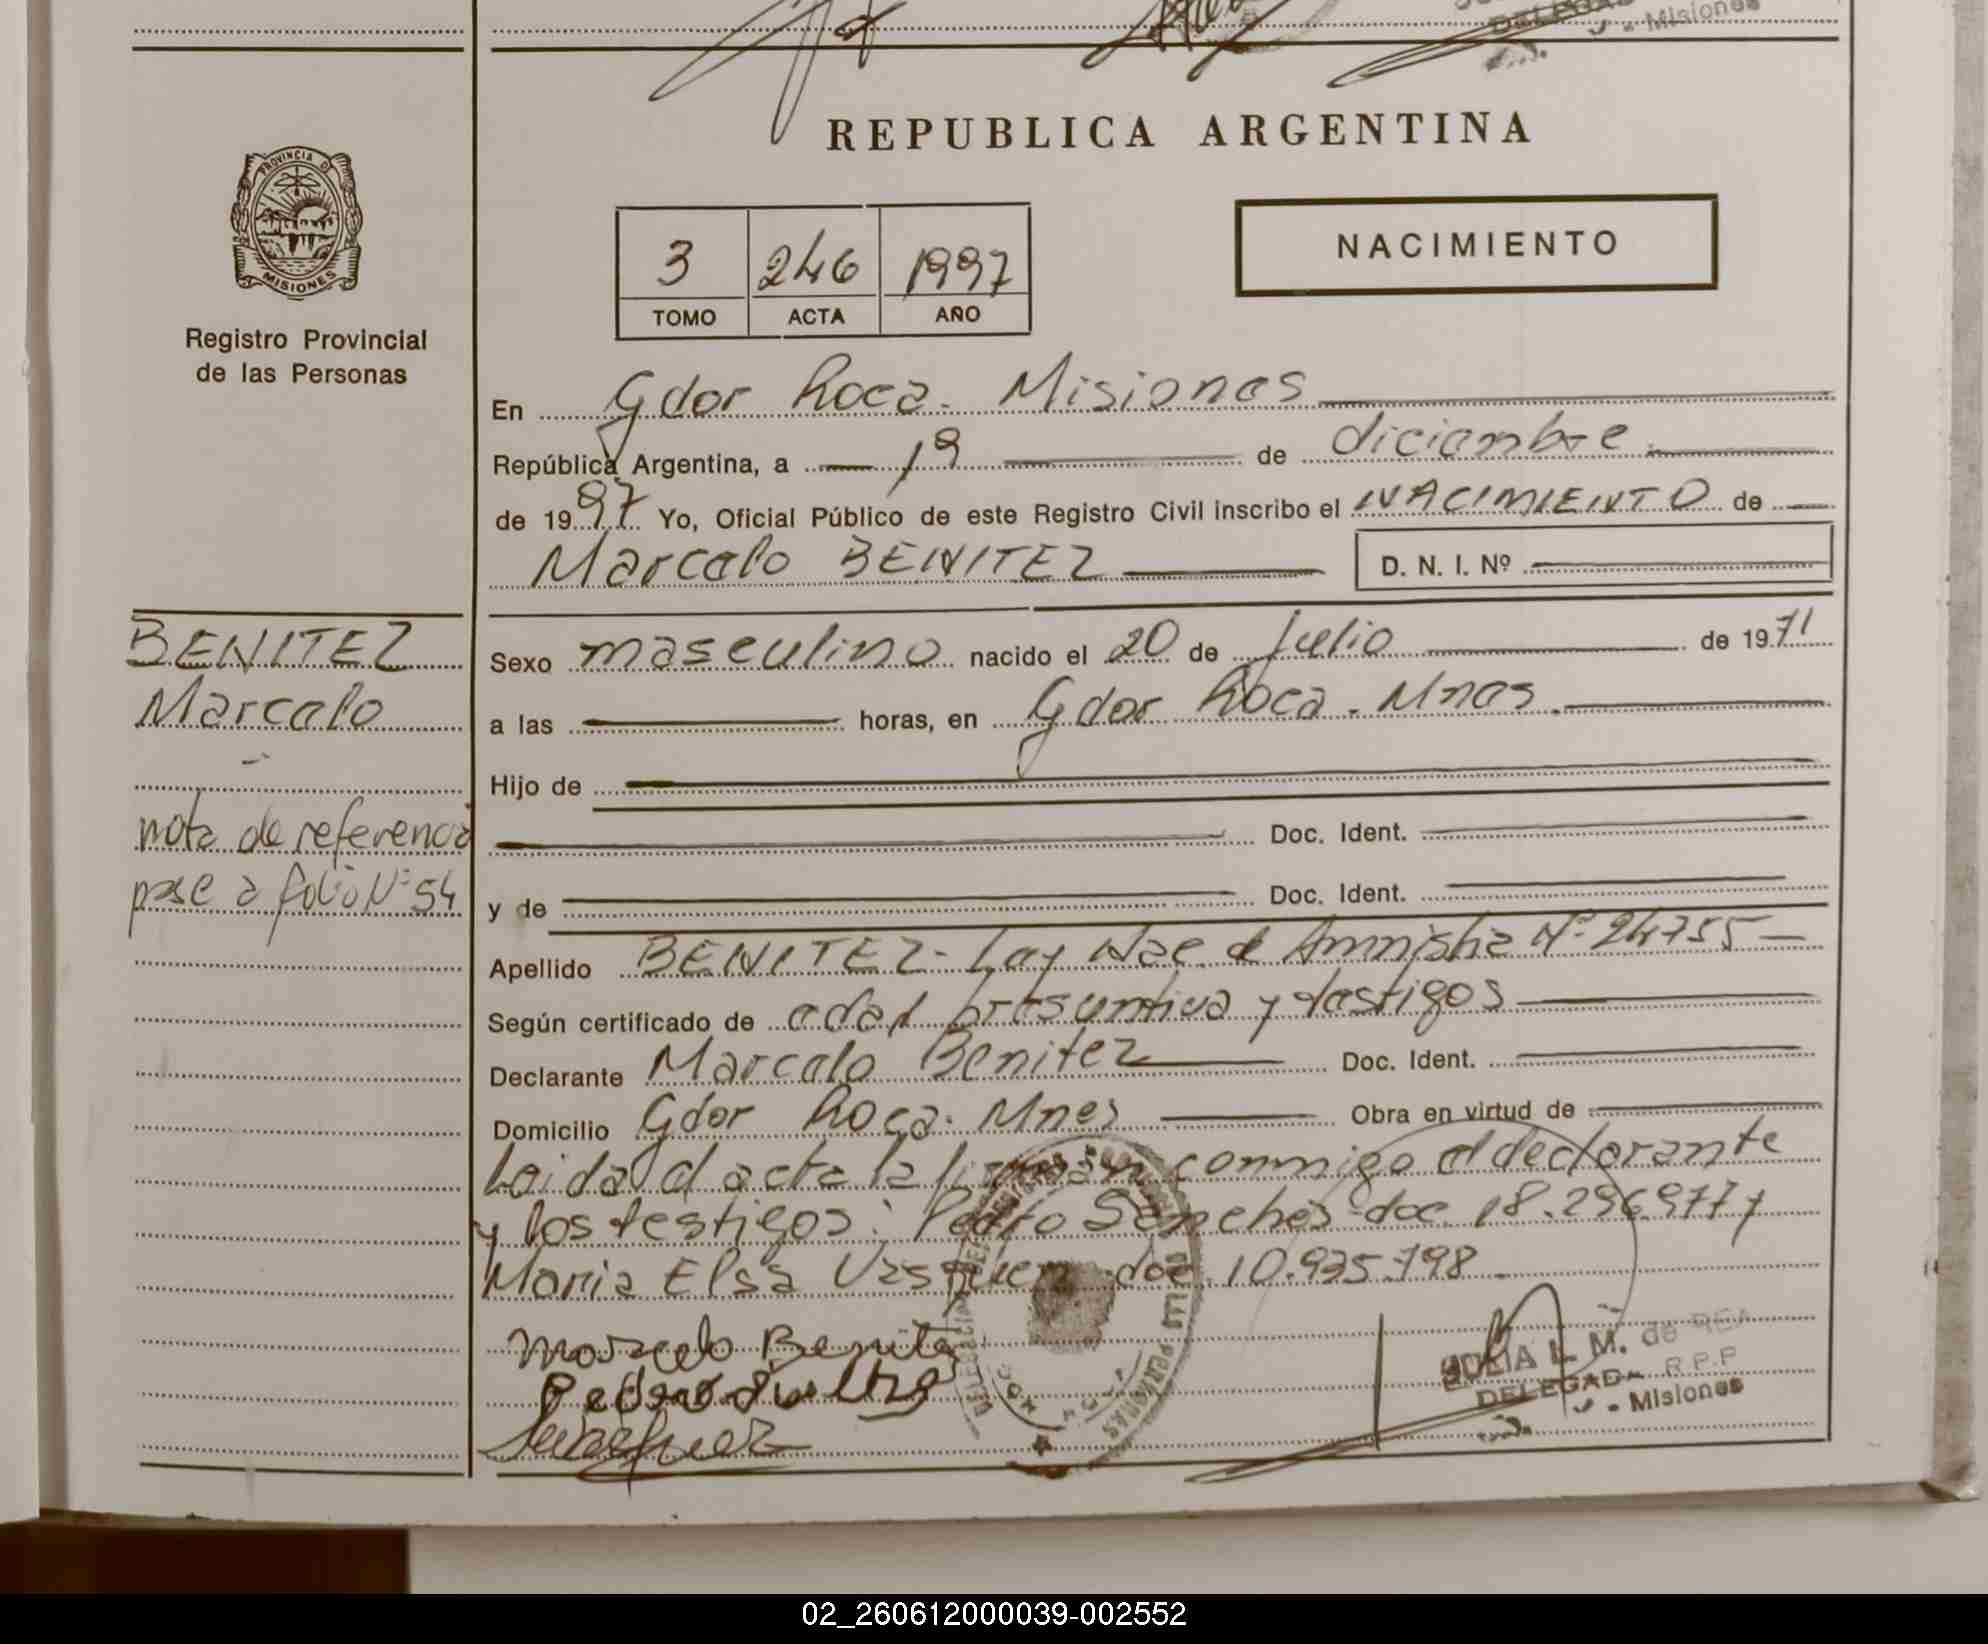 - Misiones
PROVINCIA DE
MISIONES
Registro Provincial
de las Personas
REPUBLICA ARGENTINA
3 246 1997
TOMO ACTA AÑO
NACIMIENTO
En Gdor Roca. Misiones
República Argentina, a 19 de diciembre
de 1997 Yo, Oficial Público de este Registro Civil inscribo el NACIMIENTO de
Marcelo BENITEZ D. N. I. Nº
BENITEZ
Marcelo
nota de referencia
pase a folio Nº 54
Sexo masculino nacido el 20 de Julio de 1971
a las horas, en Gdor Roca. Mnes.
Hijo de
Doc. Ident.
y de Doc. Ident.
Apellido BENITEZ - Ley Nac. de Amnistia Nº 24755
Según certificado de edad presuntiva y testigos
Declarante Marcelo Benitez Doc. Ident.
Domicilio Gdor Roca. Mnes Obra en virtud de
Leida el acta la firman conmigo el declarante
y los testigos: Pedro Senches doc. 18.296.977 y
Maria Elsa Vasquez doc. 10.935.798
Marcelo Benitez
Pedro
JULIA L. M. de REA
DELEGADA R.P.P
- Misiones
02_260612000039-002552